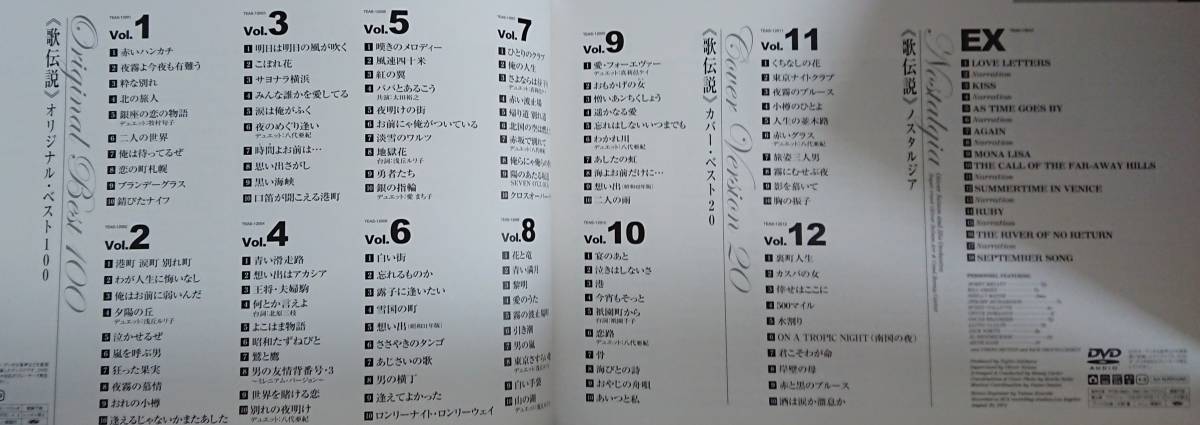 《歌伝説》オリジナル・ベスト100
Original Best 100
Vol.1
1 赤いハンカチ
2 夜霧よ今夜も有難う
3 粋な別れ
4 北の旅人
5 銀座の恋の物語
デュエット:牧村旬子
6 二人の世界
7 俺は待ってるぜ
8 恋の町札幌
9 ブランデーグラス
10 錆びたナイフ
Vol.2
1 港町 涙町 別れ町
2 わが人生に悔いなし
3 俺はお前に弱いんだ
4 夕陽の丘
デュエット:浅丘ルリ子
5 泣かせるぜ
6 嵐を呼ぶ男
7 狂った果実
8 夜霧の慕情
9 おれの小樽
10 逢えるじゃないかまたあした
Vol.3
1 明日は明日の風が吹く
2 こぼれ花
3 サヨナラ横浜
4 みんな誰かを愛してる
5 涙は俺がふく
6 夜のめぐり逢い
デュエット:八代亜紀
7 時間よお前は…
8 思い出さがし
9 黒い海峡
10 口笛が聞こえる港町
Vol.4
1 青い滑走路
2 想い出はアカシア
3 王将・夫婦駒
4 何とか言えよ
台詞:北原三枝
5 よこはま物語
6 昭和たずねびと
7 鷲と鷹
8 男の友情背番号・3
〜ミレニアム・バージョン〜
9 世界を賭ける恋
10 別れの夜明け
デュエット:八代亜紀
Vol.5
1 嘆きのメロディー
2 風速四十米
3 紅の翼
4 パパとあるこう
共演:太田裕之
5 夜明けの街
6 お前にゃ俺がついている
7 淡雪のワルツ
8 地獄花
台詞:浅丘ルリ子
9 勇者たち
10 銀の指輪
デュエット:愛まち子
Vol.6
1 白い街
2 忘れるものか
3 露子に逢いたい
4 雪国の町
5 想い出(昭和41年版)
6 ささやきのタンゴ
7 あじさいの歌
8 男の横丁
9 逢えてよかった
10 ロンリーナイト・ロンリーウェイ
Vol.7
1 ひとりのクラブ
2 俺の人生
3 さよならは
4 赤い波止場
5 帰り道 別れ道
6 北国の空は
7 赤坂で別れて
8 俺らにゃ俺らの
9 陽のあたる
SEVEN O'CLOCK
10 クロスオーバー
Vol.8
1 花と竜
2 青い満月
3 黎明
4 愛のうた
5 霧の波止場町
6 引き潮
7 男の嵐
8 東京さすらい
9 白い手袋
10 山の湖
《歌伝説》カバー・ベスト20
Cover Version 20
Vol.9
1 愛・フォーエヴァー
2 おもかげの女
3 憎いあンちくしょう
4 遥かなる愛
5 忘れはしないいつまでも
6 わかれ川
7 あしたの虹
8 海よお前だけに…
9 想い出
10 二人の雨
Vol.10
1 宴のあと
2 泣きはしないさ
3 港
4 今宵もそっと
5 祇園町から
6 恋路
デュエット:八代亜紀
7 骨
8 海びとの詩
9 おやじの舟唄
10 あいつと私
Vol.11
1 くちなしの花
2 東京ナイトクラブ
3 夜霧のブルース
4 小樽のひとよ
5 人生の並木路
6 赤いグラス
デュエット:八代亜紀
7 旅姿三人男
8 霧にむせぶ夜
9 影を慕いて
10 胸の振子
Vol.12
1 裏町人生
2 カスバの女
3 倖せはここに
4 500マイル
5 水割り
6 ON A TROPIC NIGHT(南国の夜)
7 君こそわが命
8 岸壁の母
9 赤と黒のブルース
10 酒は涙か溜息か
《歌伝説》ノスタルジア
Nostalgia
EX
1 LOVE LETTERS
2 Narration
3 KISS
4 Narration
5 AS TIME GOES BY
6 Narration
7 AGAIN
8 Narration
9 MONA LISA
10 THE CALL OF THE FAR-AWAY HILLS
11 Narration
12 SUMMERTIME IN VENICE
13 Narration
14 RUBY
15 Narration
16 THE RIVER OF NO RETURN
17 Narration
18 SEPTEMBER SONG
PERSONNEL FEATURING
DVD
AUDIO